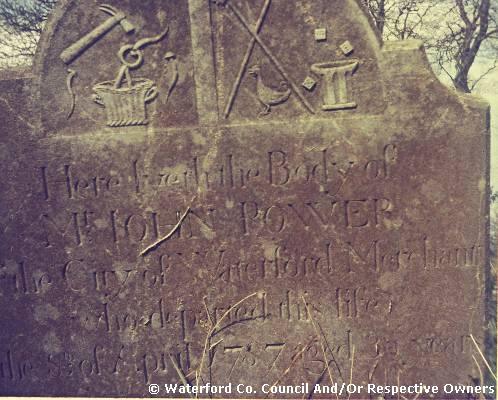 Here lyeth the Body of
Mr IOHN POWER
of the City of Waterford Merchant
who departed this life
the of April 1787 aged year
© Waterford Co. Council And/Or Respective Owners